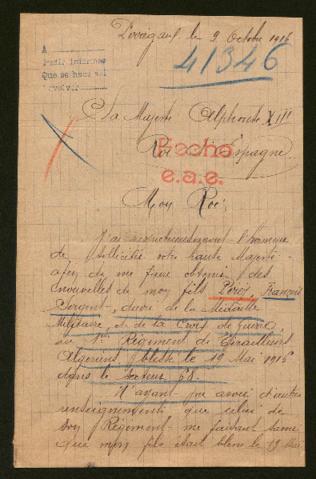 Perregaux le 9 Octobre 1916
41346
A
Pedir informes
Que se hace así
Sa Majesté Alphonse XIII
Roi d'Espagne
Hecho
e.a.e.
Mon Roi
J'ai respectueusement l'honneur
de solliciter votre haute Majesté
afin de me faire obtenir des
nouvelles de mon fils Pérez, François
Sergent, décoré de la Médaille
Militaire, et de la Croix de Guerre,
au Régiment de Tirailleurs
Algériens, blessé le 19 Mai 1916
dans le Secteur
N'ayant pu avoir d'autres
renseignements que celui de
son Régiment me faisant savoir
que mon fils était blessé le 19 Mai